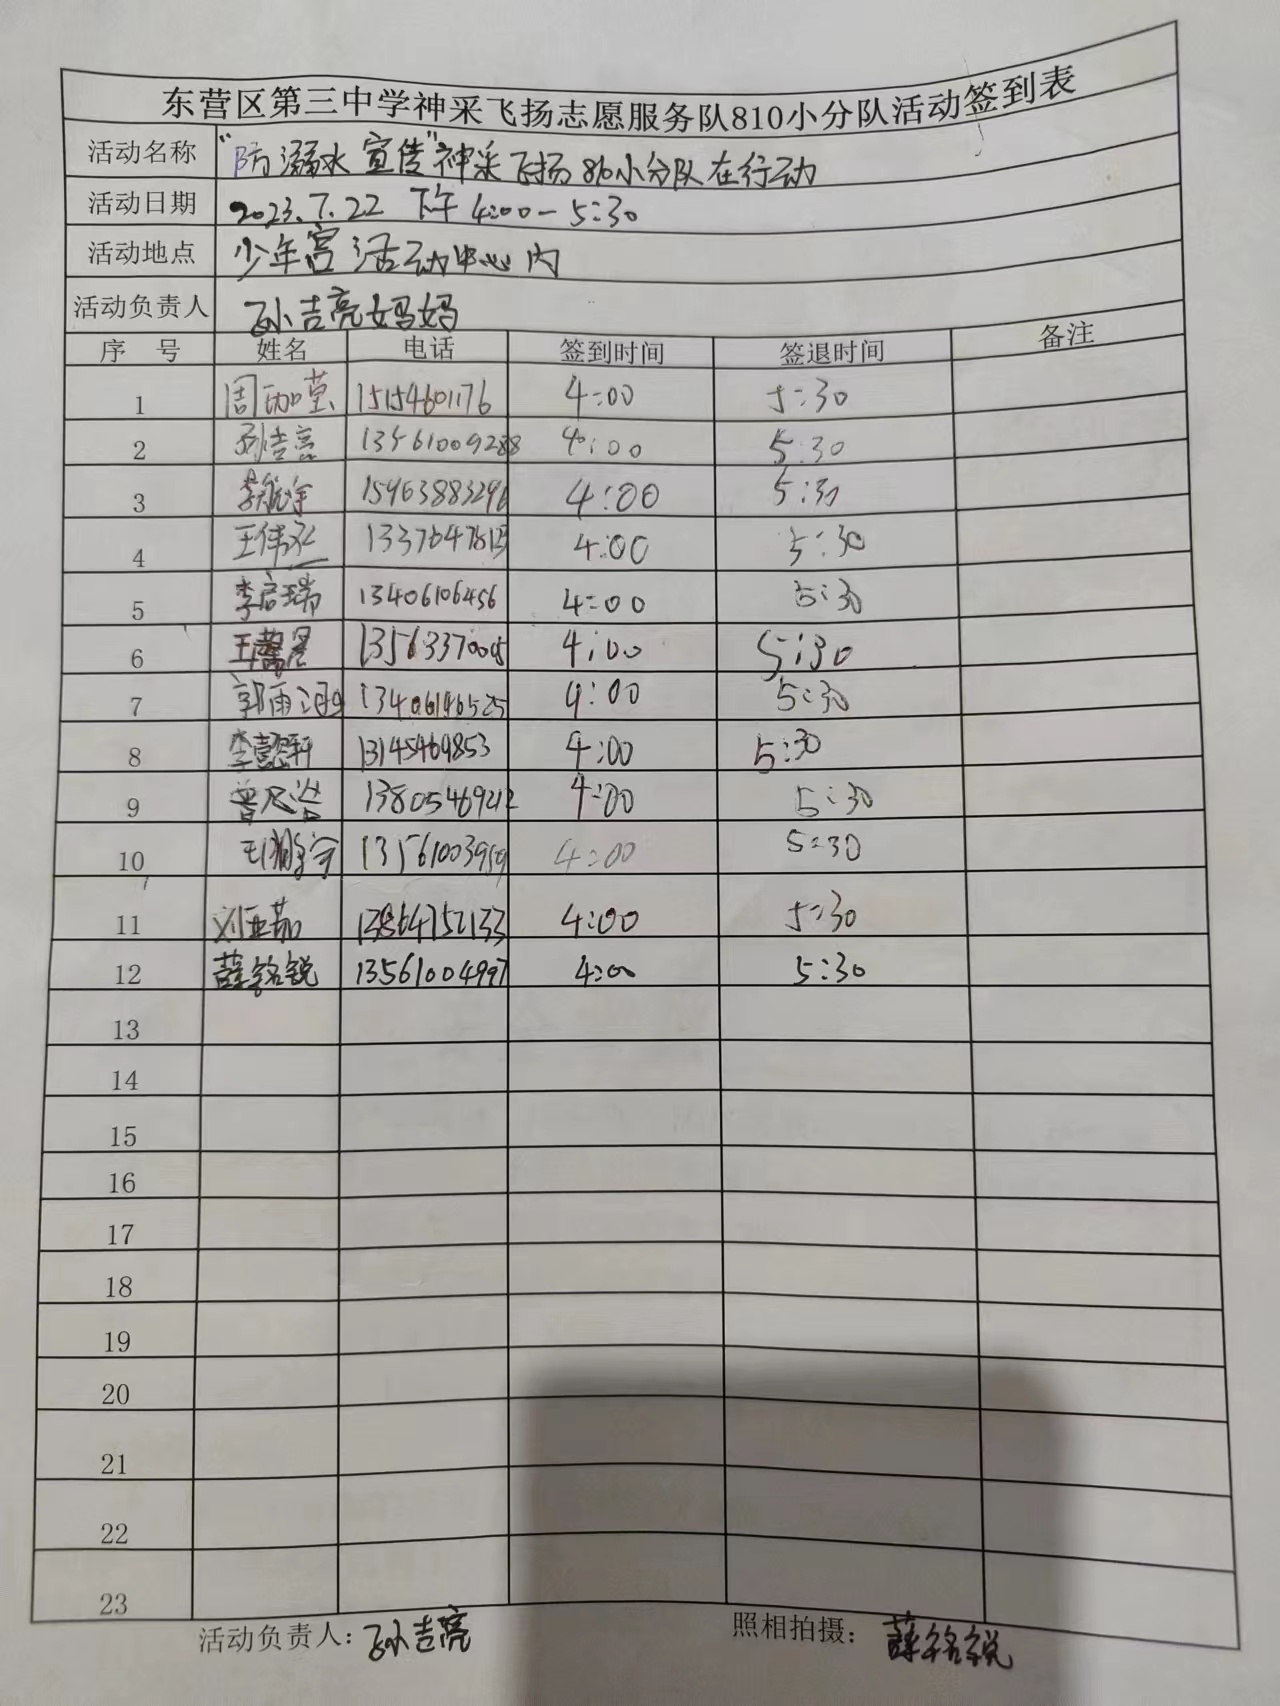 东营区第三中学神采飞扬志愿服务队810小分队活动签到表
活动名称 “防溺水宣传”神采飞扬810小分队在行动
活动日期 2023.7.22 下午4:00-5:30
活动地点 少年宫活动中心内
活动负责人 孙吉亮妈妈
序 号 姓名 电话 签到时间 签退时间 备注
1 周珈莹 15154601176 4:00 5:30
2 孙吉亮 13561009288 4:00 5:30
3 李航宇 15963883296 4:00 5:30
4 王伟丞 4:00 5:30
5 李启瑞 13406106456 4:00 5:30
6 王馨晨 13563370005 4:00 5:30
7 郭雨 13406146525 4:00 5:30
8 李懿轩 13145469853 4:00 5:30
9 13805469212 4:00 5:30
10 13561003959 4:00 5:30
11 刘亚茹 13864752133 4:00 5:30
12 薛铭锐 13561004997 4:00 5:30
13
14
15
16
17
18
19
20
21
22
23
活动负责人：孙吉亮 照相拍摄：薛铭锐